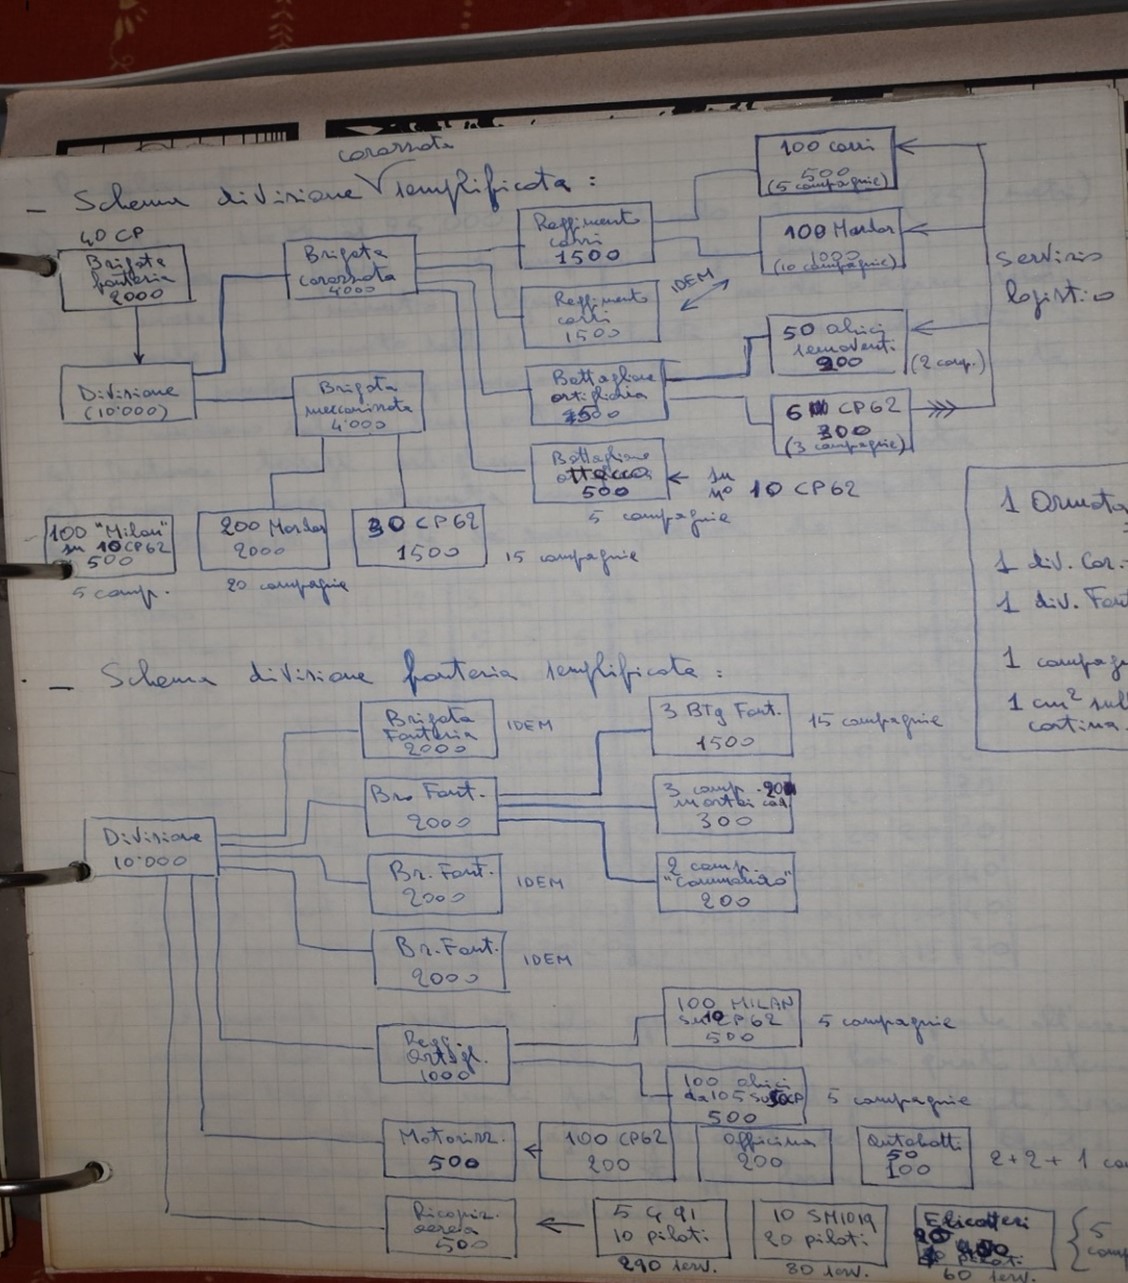 corazzata
- Schema divisione semplificata :
40 CP
Brigata
fanteria
2000
Brigata
corazzata
4000
Reggimento
carri
1500
100 carri
500
(5 compagnie)
100 Mardar
1000
(10 compagnie)
Reggimento
carri
1500
IDEM
servizio
logistico
Divisione
(10'000)
Brigata
meccanizzata
4'000
Battaglione
artiglieria
500
50 obici
semoventi
200
(2 comp.)
6 CP62
300
(3 compagnie)
Battaglione
500
su
n° 10 CP62
5 compagnie
100 "Milan"
su 10 CP62
500
5 comp.
200 Mardar
2000
20 compagnie
30 CP62
1500
15 compagnie
1 Armata
1 div. Cor.
1 div. Fant
1 compag
1 cm² sul
cartina.
- Schema divisione fanteria semplificata :
Brigata
Fanteria
2000
IDEM
3 Btg Fant.
1500
15 compagnie
Divisione
10'000
Br. Fant.
2000
3 comp.
mortai
300
Br. Fant.
2000
IDEM
2 comp.
"Commando"
200
Br. Fant.
2000
IDEM
Regg.
Artigl.
1000
100 MILAN
su 10 CP62
500
5 compagnie
100 obici
da 105 su 50 CP
500
5 compagnie
Motorizz.
500
100 CP62
200
Officina
200
Autobotti
50
100
2+2+1 co
Ricogniz.
aerea
500
5 G 91
10 piloti
290 serv.
10 SM1019
20 piloti
80 serv.
Elicotteri
20
piloti
60 serv.
5
comp